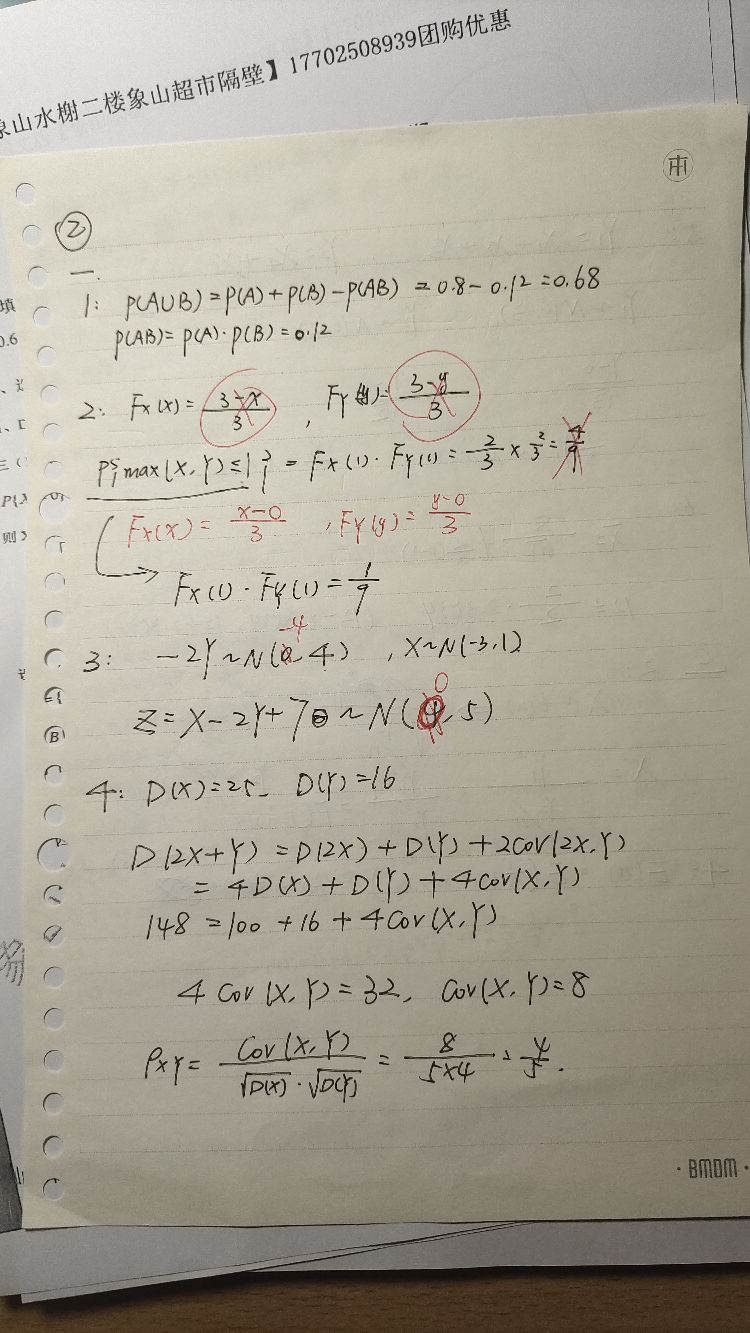 象山水榭二楼象山超市隔壁】17702508939团购优惠
②
一.
1: P(A∪B)=P(A)+P(B)-P(AB) =0.8-0.12=0.68
P(AB)=P(A)·P(B)=0.12
2: Fx(x)=(3-x)/3 , Fy(y)=(3-y)/3
P{max(X,Y)≤1}=Fx(1)·Fy(1)=2/3×2/3=4/9
Fx(x)=(x-0)/3 ,Fy(y)=(y-0)/3
Fx(1)·Fy(1)=1/9
-4
3: -2Y~N(0,4) ,X~N(-3,1)
0
Z=X-2Y+7~N( ,5)
4: D(X)=25 D(Y)=16
D(2X+Y)=D(2X)+D(Y)+2Cov(2X,Y)
=4D(X)+D(Y)+4Cov(X,Y)
148=100+16+4Cov(X,Y)
4Cov(X,Y)=32, Cov(X,Y)=8
ρxy=Cov(X,Y)/(√D(X)·√D(Y))=8/(5×4)=
·BMDM·